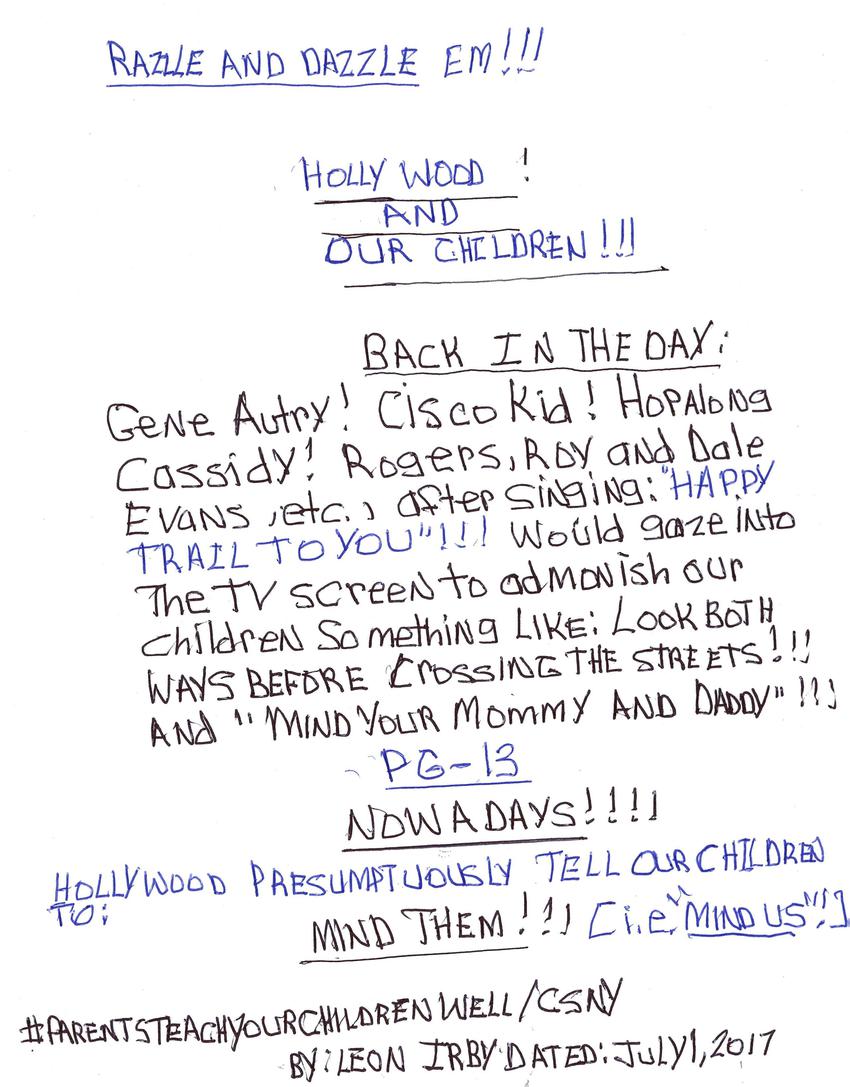 RAZLLE AND DAZZLE EM!!!
HOLLY WOOD !
AND
OUR CHILDREN!!!
BACK IN THE DAY:
Gene Autry! Cisco Kid! HopAlong
Cassidy! Rogers, Roy and Dale
Evans, etc., after singing: "HAPPY
TRAIL TO YOU"!!! Would gaze into
The TV screen to admonish our
children Something LIKE: LOOK BOTH
WAYS BEFORE CROSSING THE STREETS!!!
AND "MIND YOUR MOMMY AND DADDY"!!!
PG-13
NOWADAYS!!!!
HOLLYWOOD PRESUMPTUOUSLY TELL OUR CHILDREN
TO:
MIND THEM!!! [i.e. "MIND US"!]
#PARENTSTEACHYOURCHILDREN WELL/CSNY
BY: LEON IRBY DATED: JULY 1, 2017